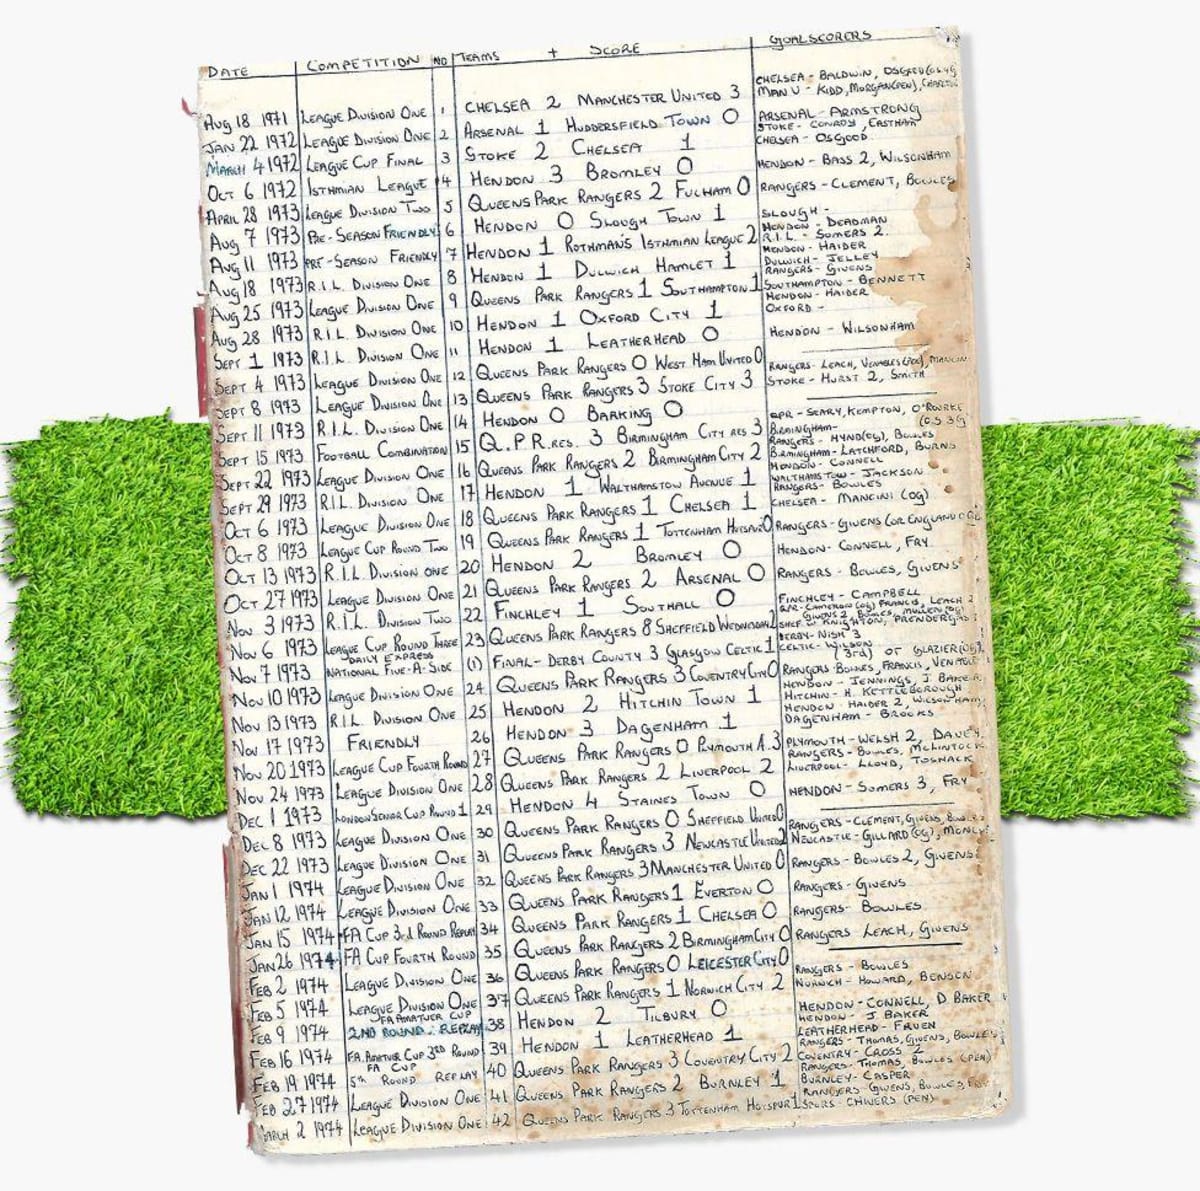 DATE COMPETITION NO TEAMS + SCORE GOALSCORERS
AUG 18 1971 LEAGUE DIVISION ONE 1 CHELSEA 2 MANCHESTER UNITED 3 CHELSEA - BALDWIN, OSGOOD MAN U - KIDD, MORGAN(PEN), CHARLTON
JAN 22 1972 LEAGUE DIVISION ONE 2 ARSENAL 1 HUDDERSFIELD TOWN 0 ARSENAL - ARMSTRONG
MARCH 4 1972 LEAGUE CUP FINAL 3 STOKE 2 CHELSEA 1 STOKE - CONROY, EASTHAM CHELSEA - OSGOOD
OCT 6 1972 ISTHMIAN LEAGUE 4 HENDON 3 BROMLEY 0 HENDON - BASS 2, WILSONHAM
APRIL 28 1973 LEAGUE DIVISION TWO 5 QUEENS PARK RANGERS 2 FULHAM 0 RANGERS - CLEMENT, BOWLES
AUG 7 1973 PRE-SEASON FRIENDLY 6 HENDON 0 SLOUGH TOWN 1 SLOUGH -
AUG 11 1973 PRE-SEASON FRIENDLY 7 HENDON 1 ROTHMAN'S ISTHMIAN LEAGUE 2 HENDON - DEADMAN R.I.L - SOMERS 2.
AUG 18 1973 R.I.L. DIVISION ONE 8 HENDON 1 DULWICH HAMLET 1 HENDON - HAIDER DULWICH - JELLEY
AUG 25 1973 LEAGUE DIVISION ONE 9 QUEENS PARK RANGERS 1 SOUTHAMPTON 1 RANGERS - GIVENS SOUTHAMPTON - BENNETT
AUG 28 1973 R.I.L. DIVISION ONE 10 HENDON 1 OXFORD CITY 1 HENDON - HAIDER OXFORD -
SEPT 1 1973 R.I.L. DIVISION ONE 11 HENDON 1 LEATHERHEAD 0 HENDON - WILSONHAM
SEPT 4 1973 LEAGUE DIVISION ONE 12 QUEENS PARK RANGERS 0 WEST HAM UNITED 0
SEPT 8 1973 LEAGUE DIVISION ONE 13 QUEENS PARK RANGERS 3 STOKE CITY 3 RANGERS - LEACH, VENABLES(PEN), MANCINI STOKE - HURST 2, SMITH
SEPT 11 1973 R.I.L. DIVISION ONE 14 HENDON 0 BARKING 0
SEPT 15 1973 FOOTBALL COMBINATION 15 Q.P.R. RES. 3 BIRMINGHAM CITY RES 3 QPR - SEARY, KEMPTON, O'ROURKE BIRMINGHAM -
SEPT 22 1973 LEAGUE DIVISION ONE 16 QUEENS PARK RANGERS 2 BIRMINGHAM CITY 2 RANGERS - HYND(OG), BOWLES BIRMINGHAM - LATCHFORD, BURNS
SEPT 29 1973 R.I.L. DIVISION ONE 17 HENDON 1 WALTHAMSTOW AVENUE 1 HENDON - CONNELL WALTHAMSTOW - JACKSON
OCT 6 1973 LEAGUE DIVISION ONE 18 QUEENS PARK RANGERS 1 CHELSEA 1 RANGERS - BOWLES CHELSEA - MANCINI (OG)
OCT 8 1973 LEAGUE CUP ROUND TWO 19 QUEENS PARK RANGERS 1 TOTTENHAM HOTSPUR 0 RANGERS - GIVENS (OR ENGLAND O.G.
OCT 13 1973 R.I.L. DIVISION ONE 20 HENDON 2 BROMLEY 0 HENDON - CONNELL, FRY.
OCT 27 1973 LEAGUE DIVISION ONE 21 QUEENS PARK RANGERS 2 ARSENAL 0 RANGERS - BOWLES, GIVENS
NOV 3 1973 R.I.L. DIVISION TWO 22 FINCHLEY 1 SOUTHALL 0 FINCHLEY - CAMPBELL
NOV 6 1973 LEAGUE CUP ROUND THREE 23 QUEENS PARK RANGERS 8 SHEFFIELD WEDNESDAY 2 QPR - CAMERON (OG) FRANCIS, LEACH 2 GIVENS 2, BOWLES, MULLEN (OG) SHEF W KNIGHTON, PRENDERGAST
NOV 7 1973 DAILY EXPRESS NATIONAL FIVE-A-SIDE (1) FINAL - DERBY COUNTY 3 GLASGOW CELTIC 1 DERBY - NISH 3 CELTIC - WILSON
NOV 10 1973 LEAGUE DIVISION ONE 24 QUEENS PARK RANGERS 3 COVENTRY CITY 0 RANGERS - BOWLES, FRANCIS, VENABLES (3rd) OR GLAZIER (OG).
NOV 13 1973 R.I.L. DIVISION ONE 25 HENDON 2 HITCHIN TOWN 1 HENDON - JENNINGS, J BAKER HITCHIN - H. KETTLEBOROUGH
NOV 17 1973 FRIENDLY 26 HENDON 3 DAGENHAM 1 HENDON - HAIDER 2, WILSONHAM, DAGENHAM - BROOKS
NOV 20 1973 LEAGUE CUP FOURTH ROUND 27 QUEENS PARK RANGERS 0 PLYMOUTH A. 3 PLYMOUTH - WELSH 2, DAVEY
NOV 24 1973 LEAGUE DIVISION ONE 28 QUEENS PARK RANGERS 2 LIVERPOOL 2 RANGERS - BOWLES, MCLINTOCK LIVERPOOL - LLOYD, TOSHACK
DEC 1 1973 LONDON SENIOR CUP ROUND 1 29 HENDON 4 STAINES TOWN 0 HENDON - SOMERS 3, FRY
DEC 8 1973 LEAGUE DIVISION ONE 30 QUEENS PARK RANGERS 0 SHEFFIELD UNITED 0
DEC 22 1973 LEAGUE DIVISION ONE 31 QUEENS PARK RANGERS 3 NEWCASTLE UNITED 2 RANGERS - CLEMENT, GIVENS, BOWLES NEWCASTLE - GILLARD (OG),
JAN 1 1974 LEAGUE DIVISION ONE 32 QUEENS PARK RANGERS 3 MANCHESTER UNITED 0 RANGERS - BOWLES 2, GIVENS
JAN 12 1974 LEAGUE DIVISION ONE 33 QUEENS PARK RANGERS 1 EVERTON 0 RANGERS - GIVENS
JAN 15 1974 FA CUP 3rd ROUND REPLAY 34 QUEENS PARK RANGERS 1 CHELSEA 0 RANGERS - BOWLES
JAN 26 1974 FA CUP FOURTH ROUND 35 QUEENS PARK RANGERS 2 BIRMINGHAM CITY 0 RANGERS - LEACH, GIVENS
FEB 2 1974 LEAGUE DIVISION ONE 36 QUEENS PARK RANGERS 0 LEICESTER CITY 0
FEB 5 1974 LEAGUE DIVISION ONE 37 QUEENS PARK RANGERS 1 NORWICH CITY 2 RANGERS - BOWLES NORWICH - HOWARD, BENSON
FEB 9 1974 FA AMATUER CUP 2ND ROUND REPLAY 38 HENDON 2 TILBURY 0 HENDON - CONNELL, D BAKER
FEB 16 1974 FA. AMATUER CUP 3RD ROUND 39 HENDON 1 LEATHERHEAD 1 HENDON - J BAKER LEATHERHEAD - FRUEN
FEB 19 1974 FA CUP 5th ROUND REPLAY 40 QUEENS PARK RANGERS 3 COVENTRY CITY 2 RANGERS - THOMAS, GIVENS, BOWLES COVENTRY - CROSS 2
FEB 27 1974 LEAGUE DIVISION ONE 41 QUEENS PARK RANGERS 2 BURNLEY 1 RANGERS - THOMAS, BOWLES (PEN) BURNLEY - CASPER
MARCH 2 1974 LEAGUE DIVISION ONE 42 QUEENS PARK RANGERS 3 TOTTENHAM HOTSPUR 1 RANGERS - GIVENS, BOWLES, SPURS - CHIVERS (PEN)